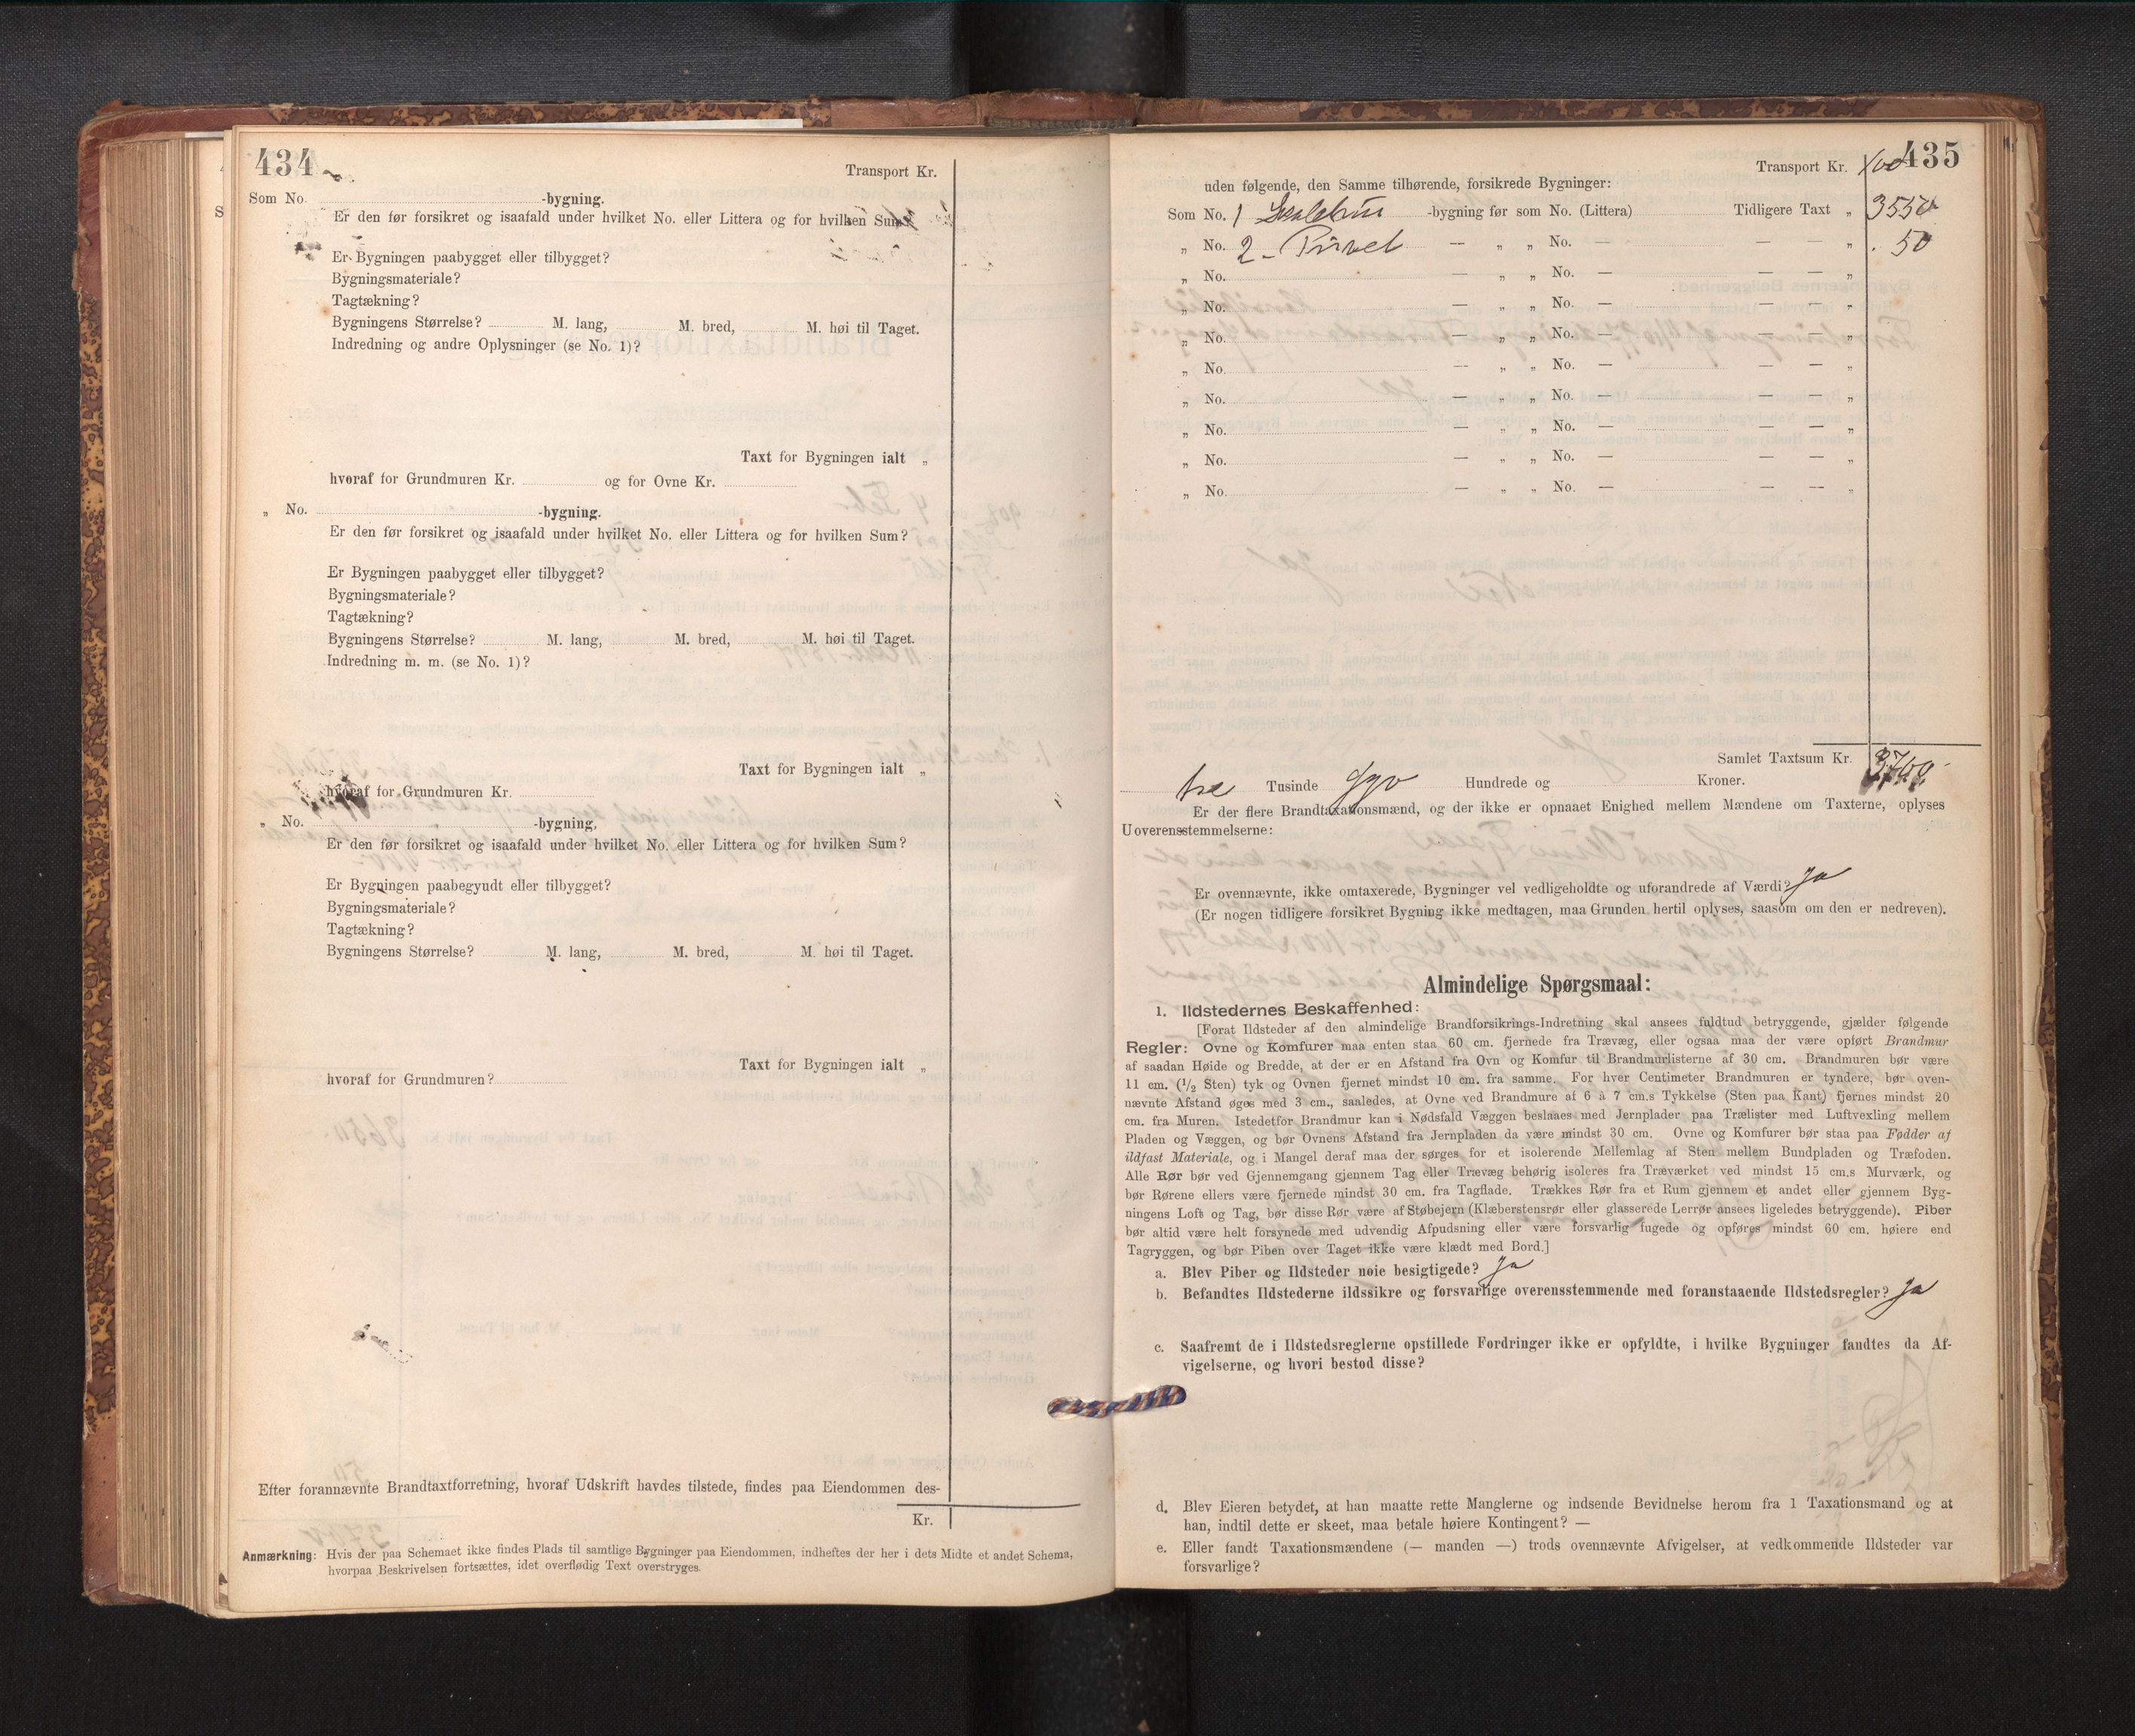 434
Transport Kr.
Som No. -bygning.
Er den før forsikret og isaafald under hvilket No. eller Littera og for hvilken Sum?
Er Bygningen paabygget eller tilbygget?
Bygningsmateriale?
Tagtækning?
Bygningens Størrelse? M. lang, M. bred, M. høi til Taget.
Indredning og andre Oplysninger (se No. 1)?
Taxt for Bygningen ialt „
hvoraf for Grundmuren Kr. og for Ovne Kr.
„ No. -bygning.
Er den før forsikret og isaafald under hvilket No. eller Littera og for hvilken Sum?
Er Bygningen paabygget eller tilbygget?
Bygningsmateriale?
Tagtækning?
Bygningens Størrelse? M. lang, M. bred, M. høi til Taget.
Indredning m. m. (se No. 1)?
Taxt for Bygningen ialt „
hvoraf for Grundmuren Kr.
„ No. -bygning,
Er den før forsikret og isaafald under hvilket No. eller Littera og for hvilken Sum?
Er Bygningen paabegyudt eller tilbygget?
Bygningsmateriale?
Tagtækning?
Bygningens Størrelse? M. lang, M. bred, M. høi til Taget.
Taxt for Bygningen ialt „
hvoraf for Grundmuren?
Efter forannævnte Brandtaxtforretning, hvoraf Udskrift havdes tilstede, findes paa Eiendommen des-
Kr.
Anmærkning: Hvis der paa Schemaet ikke findes Plads til samtlige Bygninger paa Eiendommen, indheftes der her i dets Midte et andet Schema,
hvorpaa Beskrivelsen fortsættes, idet overflødig Text overstryges.
435
Transport Kr. 100
uden følgende, den Samme tilhørende, forsikrede Bygninger:
Som No. 1 -bygning før som No. (Littera) Tidligere Taxt „ 3550
„ No. 2 - Privet — „ „ No. — — — „ 50
„ No. — „ „ No. — — — „
„ No. — „ „ No. — — — „
„ No. — „ „ No. — — — „
„ No. — „ „ No. — — — „
„ No. — „ „ No. — — — „
„ No. — „ „ No. — — — „
„ No. — „ „ No. — — — „
„ No. — „ „ No. — — — „
Samlet Taxtsum Kr. 3700
tre Tusinde syv Hundrede og Kroner.
Er der flere Brandtaxationsmænd, og der ikke er opnaaet Enighed mellem Mændene om Taxterne, oplyses
Uoverensstemmelserne:
Er ovennævnte, ikke omtaxerede, Bygninger vel vedligeholdte og uforandrede af Værdi? Ja
(Er nogen tidligere forsikret Bygning ikke medtagen, maa Grunden hertil oplyses, saasom om den er nedreven).
Almindelige Spørgsmaal:
1. Ildstedernes Beskaffenhed:
[Forat Ildsteder af den almindelige Brandforsikrings-Indretning skal ansees fuldtud betryggende, gjælder følgende
Regler: Ovne og Komfurer maa enten staa 60 cm. fjernede fra Trævæg, eller ogsaa maa der være opført Brandmur
af saadan Høide og Bredde, at der er en Afstand fra Ovn og Komfur til Brandmurlisterne af 30 cm. Brandmuren bør være
11 cm. (1/2 Sten) tyk og Ovnen fjernet mindst 10 cm. fra samme. For hver Centimeter Brandmuren er tyndere, bør oven-
nævnte Afstand øges med 3 cm., saaledes, at Ovne ved Brandmure af 6 à 7 cm.s Tykkelse (Sten paa Kant) fjernes mindst 20
cm. fra Muren. Istedetfor Brandmur kan i Nødsfald Væggen beslaaes med Jernplader paa Trælister med Luftvexling mellem
Pladen og Væggen, og bør Ovnens Afstand fra Jernpladen da være mindst 30 cm. Ovne og Komfurer bør staa paa Fødder af
ildfast Materiale, og i Mangel deraf maa der sørges for et isolerende Mellemlag af Sten mellem Bundpladen og Træfoden.
Alle Rør bør ved Gjennemgang gjennem Tag eller Trævæg behørig isoleres fra Træværket ved mindst 15 cm.s Murværk, og
bør Rørene ellers være fjernede mindst 30 cm. fra Tagflade. Trækkes Rør fra et Rum gjennem et andet eller gjennem Byg-
ningens Loft og Tag, bør disse Rør være af Støbejern (Klæberstensrør eller glasserede Lerrør ansees ligeledes betryggende). Piber
bør altid være helt forsynede med udvendig Afpudsning eller være forsvarlig fugede og opføres mindst 60 cm. høiere end
Tagryggen, og bør Piben over Taget ikke være klædt med Bord.]
a. Blev Piber og Ildsteder nøie besigtigede? Ja
b. Befandtes Ildstederne ildssikre og forsvarlige overensstemmende med foranstaaende Ildstedsregler? Ja
c. Saafremt de i Ildstedsreglerne opstillede Fordringer ikke er opfyldte, i hvilke Bygninger fandtes da Af-
vigelserne, og hvori bestod disse?
d. Blev Eieren betydet, at han maatte rette Manglerne og indsende Bevidnelse herom fra 1 Taxationsmand og at
han, indtil dette er skeet, maa betale høiere Kontingent? —
e. Eller fandt Taxationsmændene (— manden —) trods ovennævnte Afvigelser, at vedkommende Ildsteder var
forsvarlige?